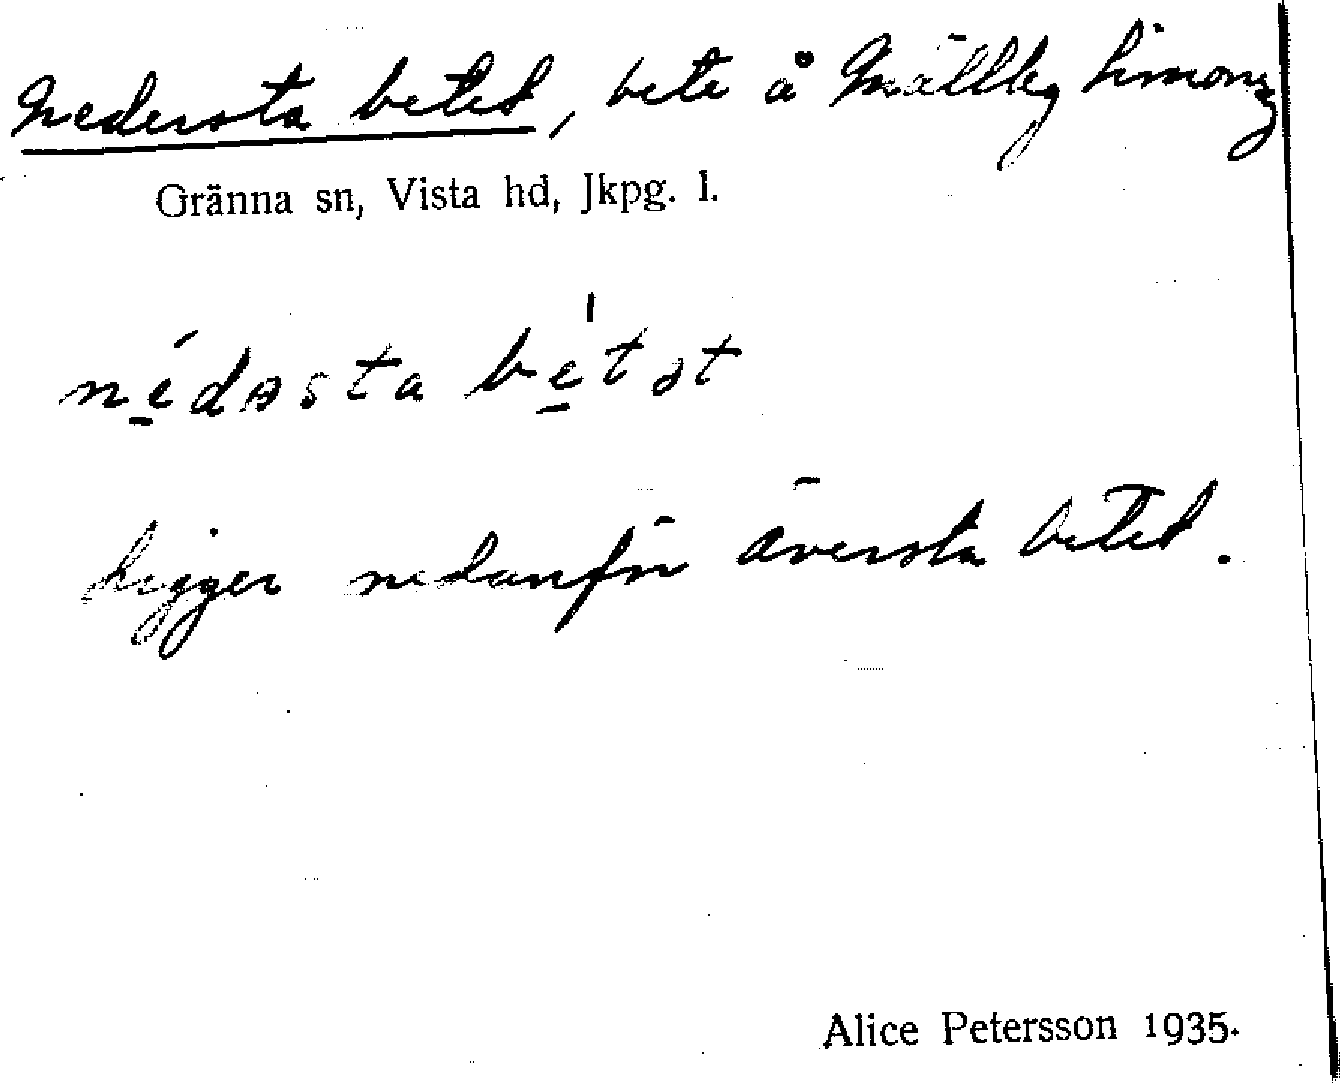 Nedersta betet, bete å Mällby Simons
Gränna sn, Vista hd, Jkpg. l.
nédasta bétət
Ligger nedanför översta betet.
Alice Petersson 1935.